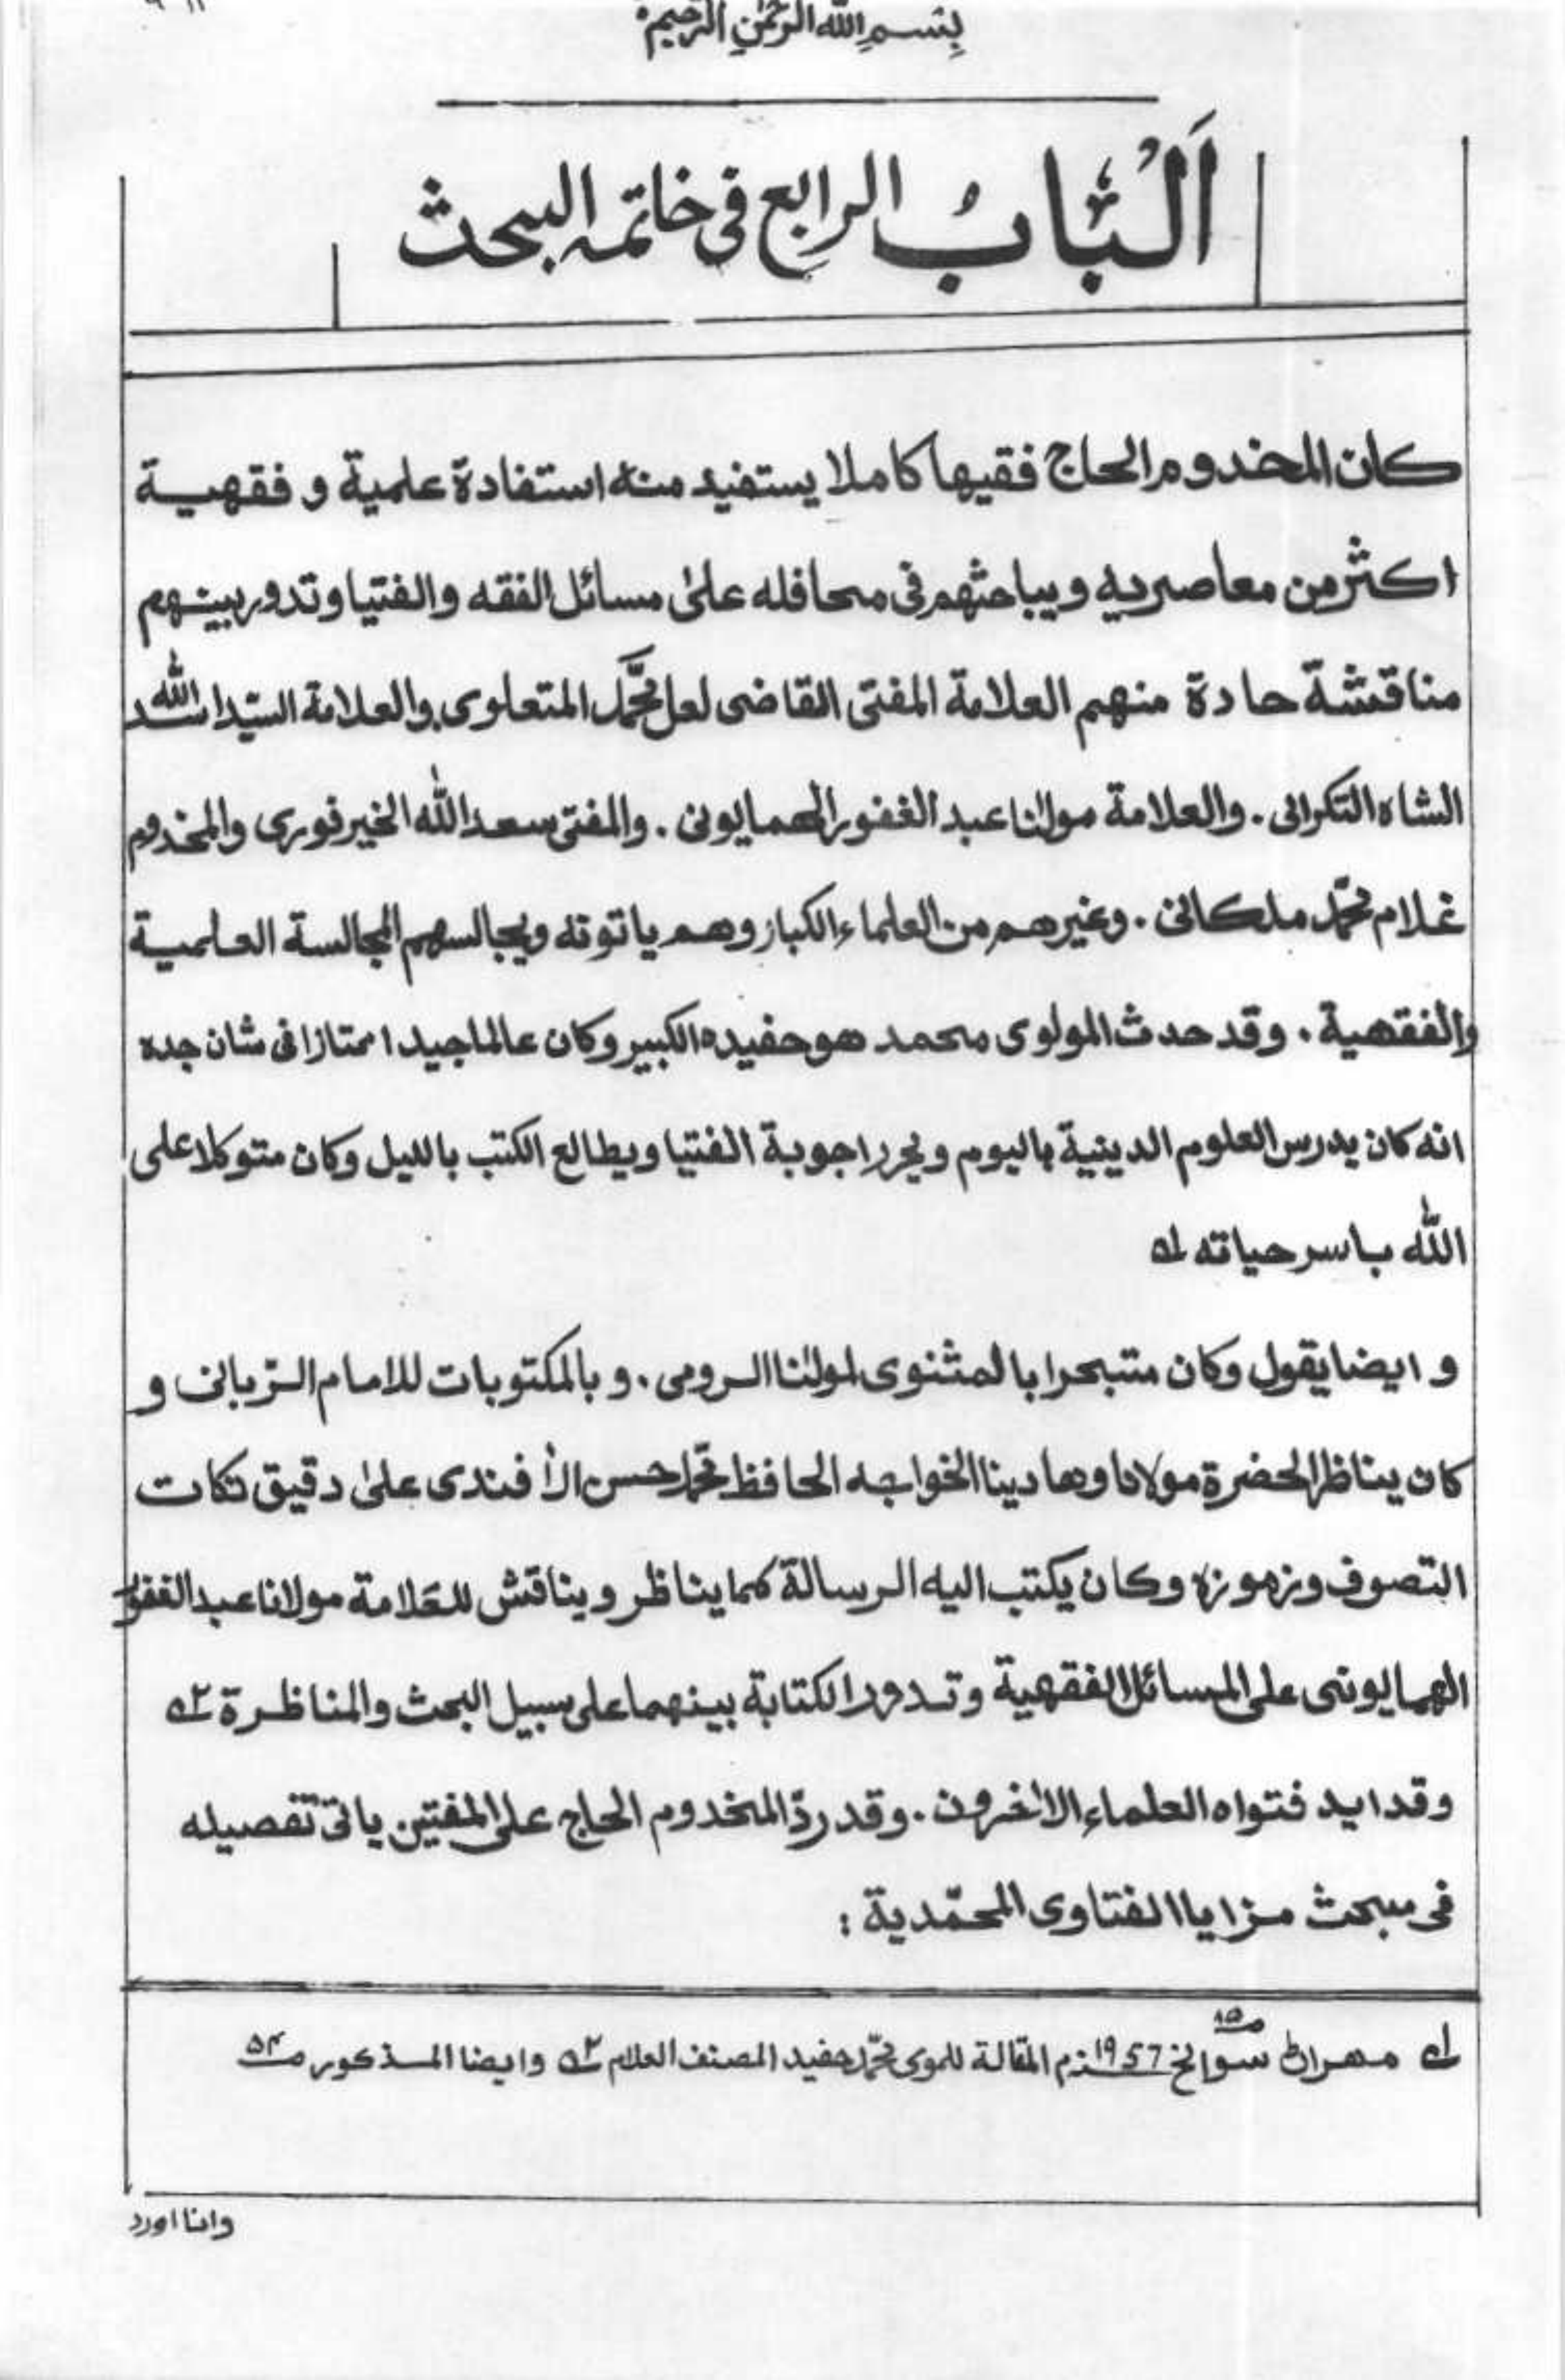 بِسْمِ اللّٰهِ الرَّحْمٰنِ الرَّحِيْمِ
اَلْبَابُ الرابع فى خاتمہ البحث
كان المخدوم الحاج فقيها كاملا يستفيد منه استفادة علمية و فقهية
اكثر من معاصريه ويباحثهم فى محافله علىٰ مسائل الفقه والفتيا وتدور بينهم
مناقشة حادة منهم العلامة المفتى القاضى لعل محمّد المتعلوى والعلامة السيّد اسد اللّٰه
الشاه التكرائى . والعلامة مولٰنا عبد الغفور الهمايونى . والمفتى سعد اللّٰه الخيرفورى والمخدوم
غلام محمّد ملكانى . وغيرهم من العلماء الكبار وهم ياتونه ويجالسهم المجالسة العلمية
والفقهية . وقد حدث المولوى محمد هو حفيده الكبير وكان عالما جيدا ممتازا فى شان جده
انه كان يدرس العلوم الدينية باليوم ويحرر اجوبة الفتيا ويطالع الكتب بالليل وكان متوكلا على
اللّٰه باسر حياته لے
و ايضا يقول وكان متبحرا بالمثنوى لمولٰنا الرومى . و بالمكتوبات للامام الرّبانى و
كان يناظر الحضرة مولانا وهادينا الخواجه الحافظ محمّد حسن الأفندى علىٰ دقيق نكات
التصوف ورموزه وكان يكتب اليه الرسالة كما يناظر ويناقش للعَلامة مولانا عبد الغفور
الهمايونى على المسائل الفقهية وتدور الكتابة بينهما على سبيل البحث والمناظرة ٢ے
وقد ايد فتواه العلماء الاٰخرون . وقد ردّ المخدوم الحاج على المفتين ياتى تفصيله
فى مبحث مزايا الفتاوى المحمّدية :
لے مهراڻ سوانح ١٩٥٧م المقالة للموى محمّد حفيد المصنف العلام ٢ے وايضا المذكور صـ٥٤
صـ١٥
وانا اورد